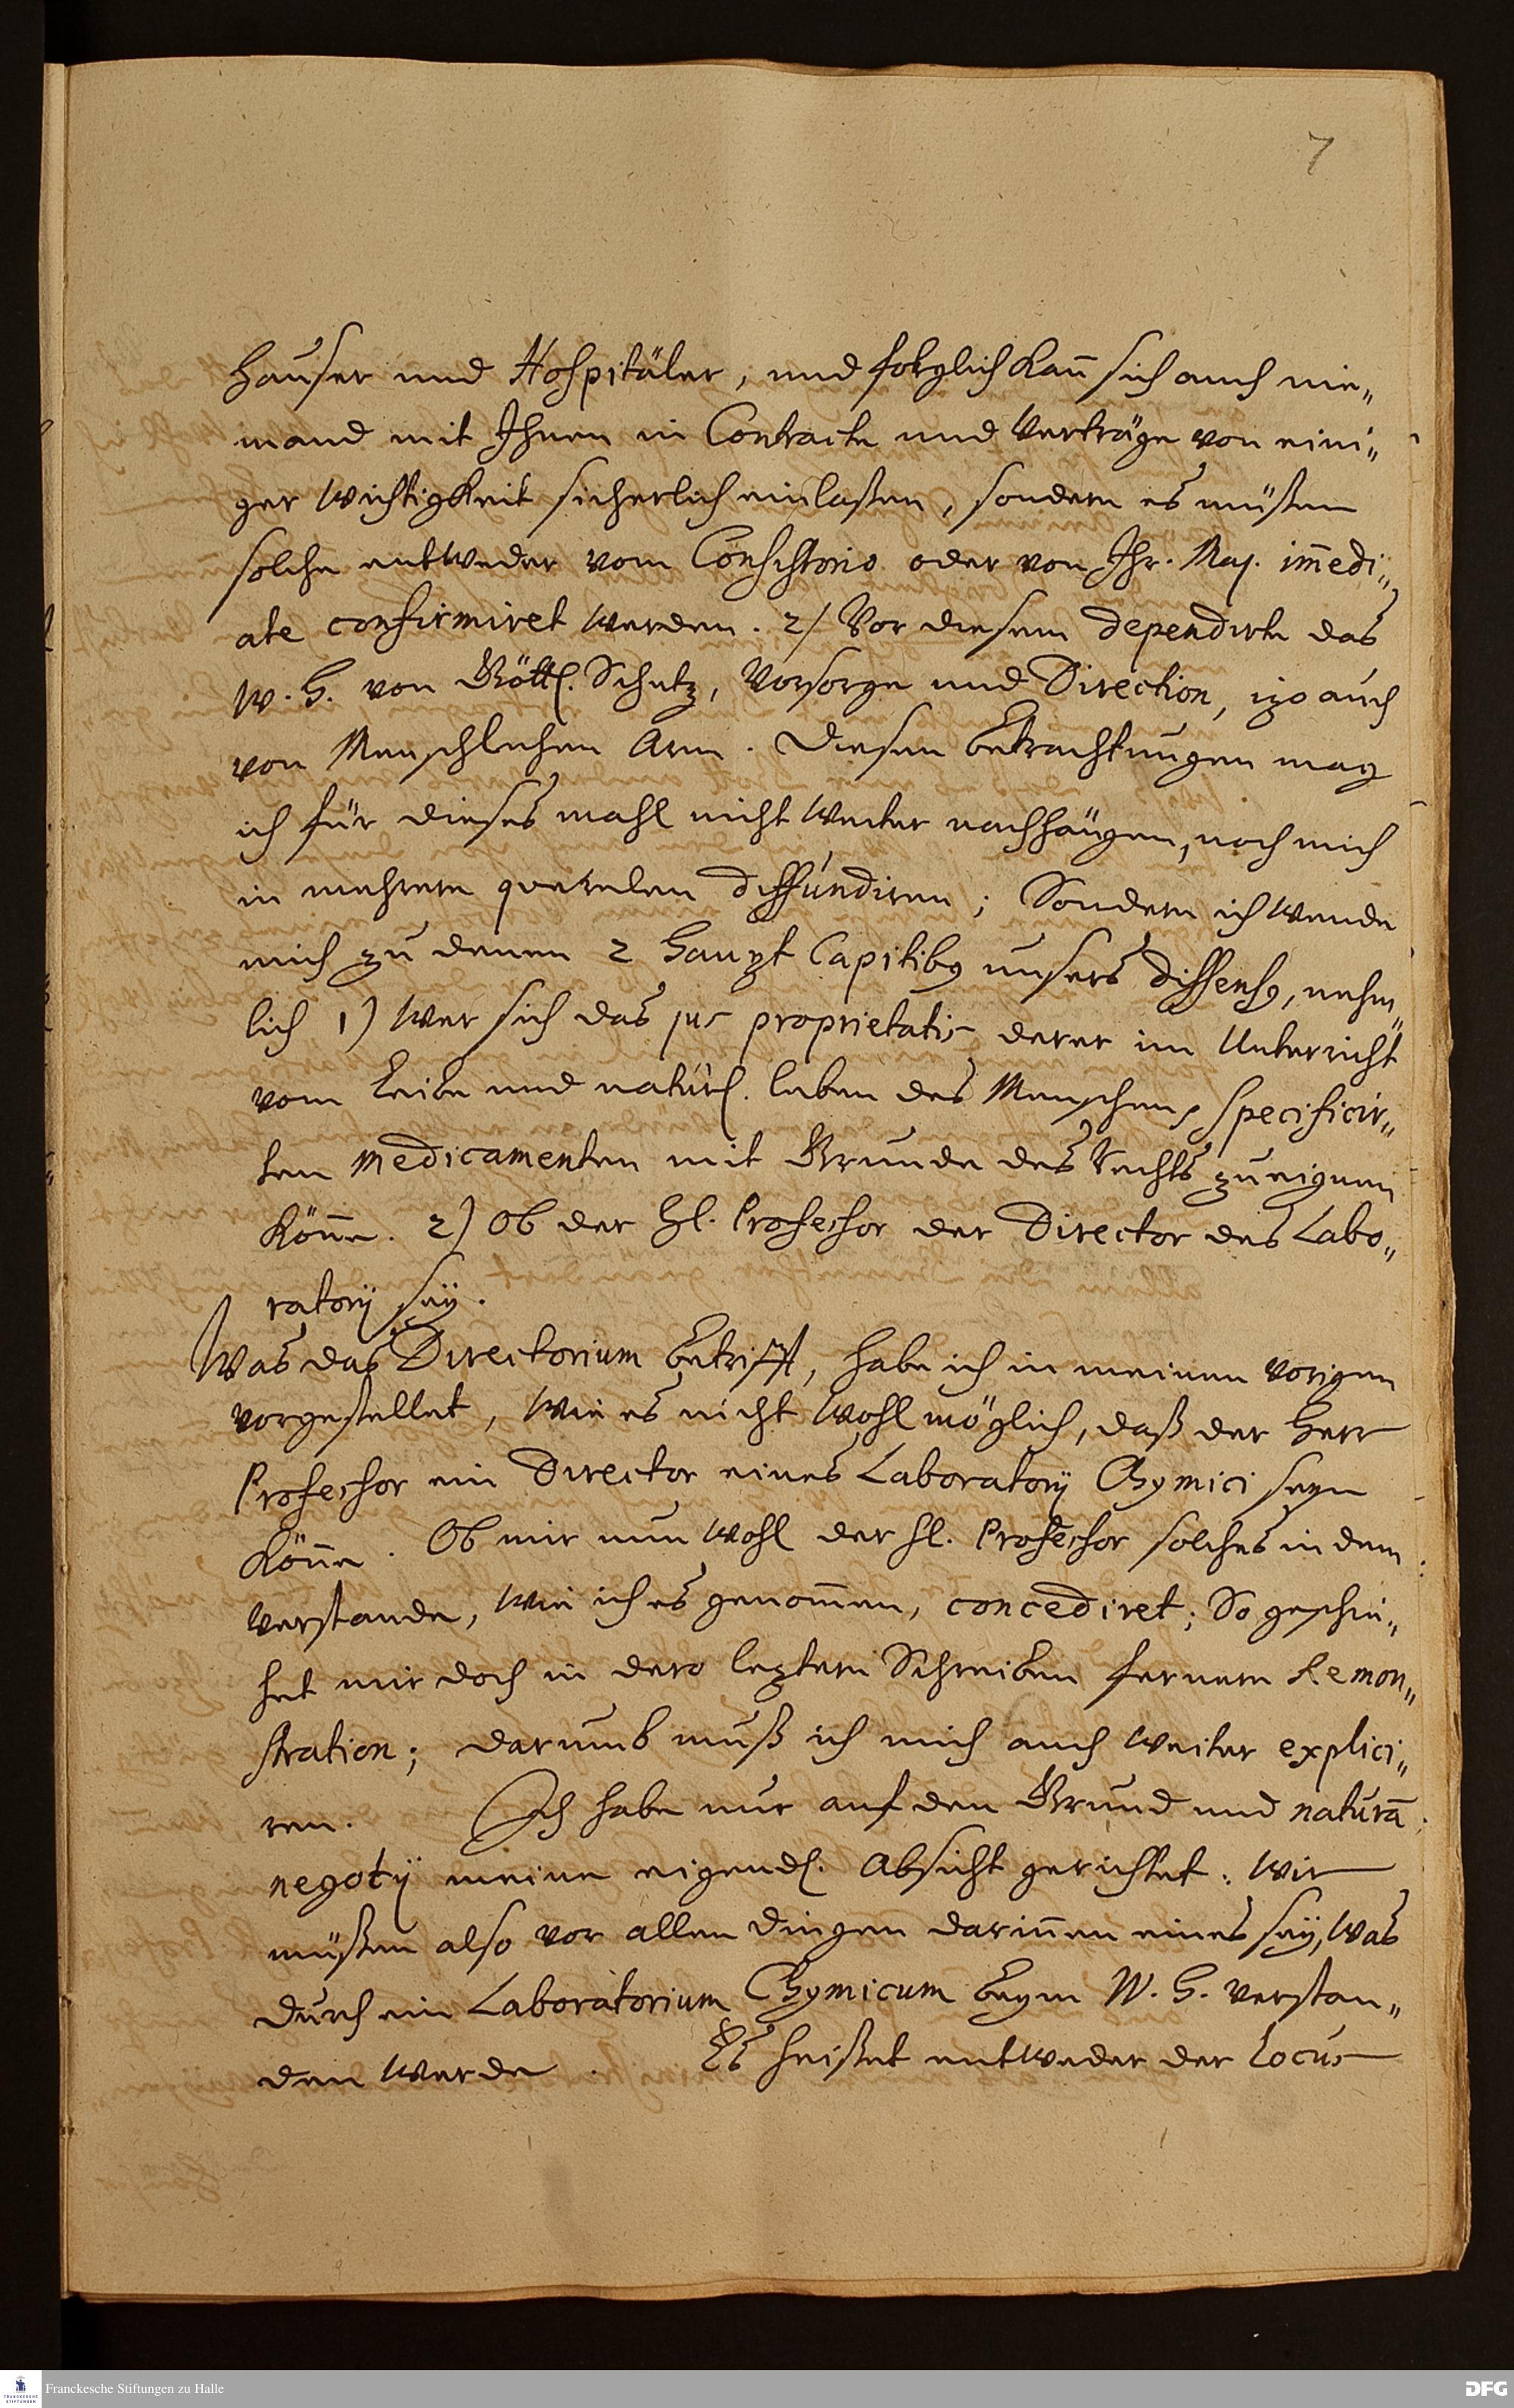 7
häuser und Hospitäler, und folglich kan̄ sich auch nie„
mand mit Ihnen in Contracte und Verträge von eini„
ger wichtigkeit sicherlich einlaßen, sondern es müßen
solche entweder vom Consistorio oder von Ihr. Maj. im̄edi„
ate confirmiret werden. 2/ Vor diesem dependirte das
W. H. von Göttl. Schutz, Vorsorge und Direction, izo auch
von Menschlichen Arm. Diesen betrachtungen mag
ich für dieses mahl nicht weiter nachhängen, noch mich
in mehrern querelen diffundiren; Sondern ich wende
mich zu denen 2 Haupt Capitibg unsers dissensg, nehm„
lich 1) wer sich das jus proprietatis derer im Unterricht
vom Leibe und natürl. leben des Menschens specificir„
ten medicamenten mit Grunde des Rechts zueignen
kön̄e. 2) Ob der Hl. Professor der Director des Labo„
ratorij seÿ.
Was das Directorium betrifft, habe ich in meinem vorigen
vorgestellet, wie es nicht wohl möglich, daß der Herr
Professor ein Director eines Laboratorij Chymici seyn
kön̄e. Ob mir nun wohl der Hl. Professor solches in dem
verstande, wie ich es genom̄en, concediret; So geschie„
het mir doch in dero leztern Schreiben fernern Remon„
stration; darumb muß ich mich auch weiter explici„
ren. Ich habe nur auf den Grund und naturā
negotij meine eigendl. Absicht gerichtet. Wir
müßen also vor allen dingen darin̄en eines seÿ, was
durch ein Laboratorium Chymicum beym W. H. verstan„
den werde. Es heißet entweder der Locus
Franckesche Stiftungen zu Halle
FRANCKESCHE STIFTUNGEN
DFG